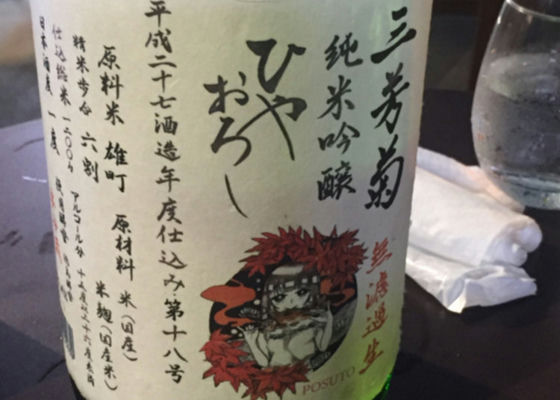 三芳菊
純米吟醸
ひや
おろし
無濾過生
平成二十七酒造年度仕込み・第十八号
原料米 雄町
原材料 米(国産)
米麹(国産米)
精米歩合 六割
アルコール分 十五度以上十六度未満
仕込総米 一二〇〇キロ
日本酒度 一度
POSUTO